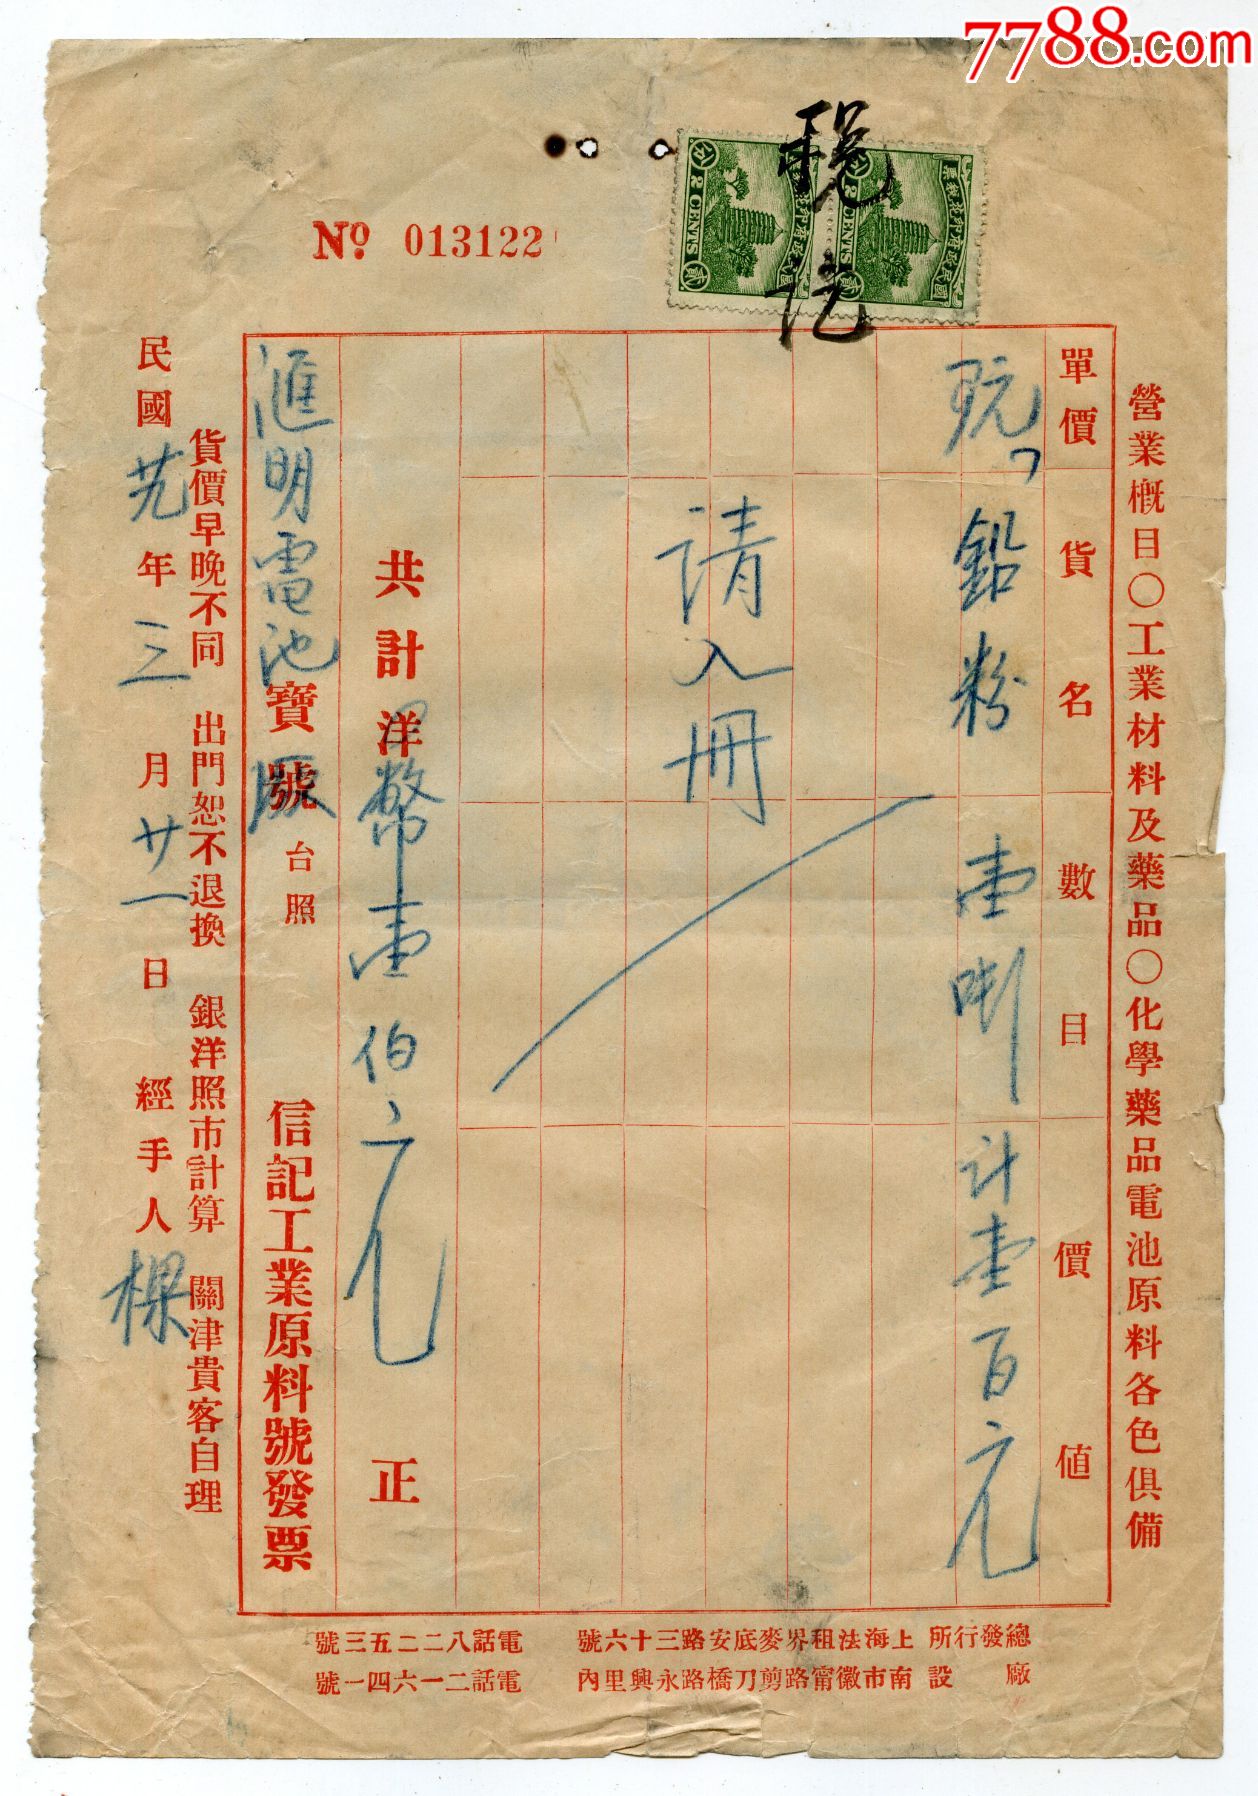 7788.com
№ 013122
國民政府印花稅票
貳分
2 CENTS
貳
國民政府印花稅票
貳分
2 CENTS
貳
營業概目○工業材料及藥品○化學藥品電池原料各色俱備
單價 貨名 數目 價值
鉛粉 壹 計壹百元
請入冊
共計洋幣壹佰元正
滙明電池廠寶號台照
信記工業原料號發票
貨價早晚不同 出門恕不退換 銀洋照市計算 關津貴客自理
民國年三月廿一日 經手人
總發行所 上海法租界麥底安路三十六號 電話八二二五三號
廠設 南市徽甯路剪刀橋路永興里內 電話二一六四一號